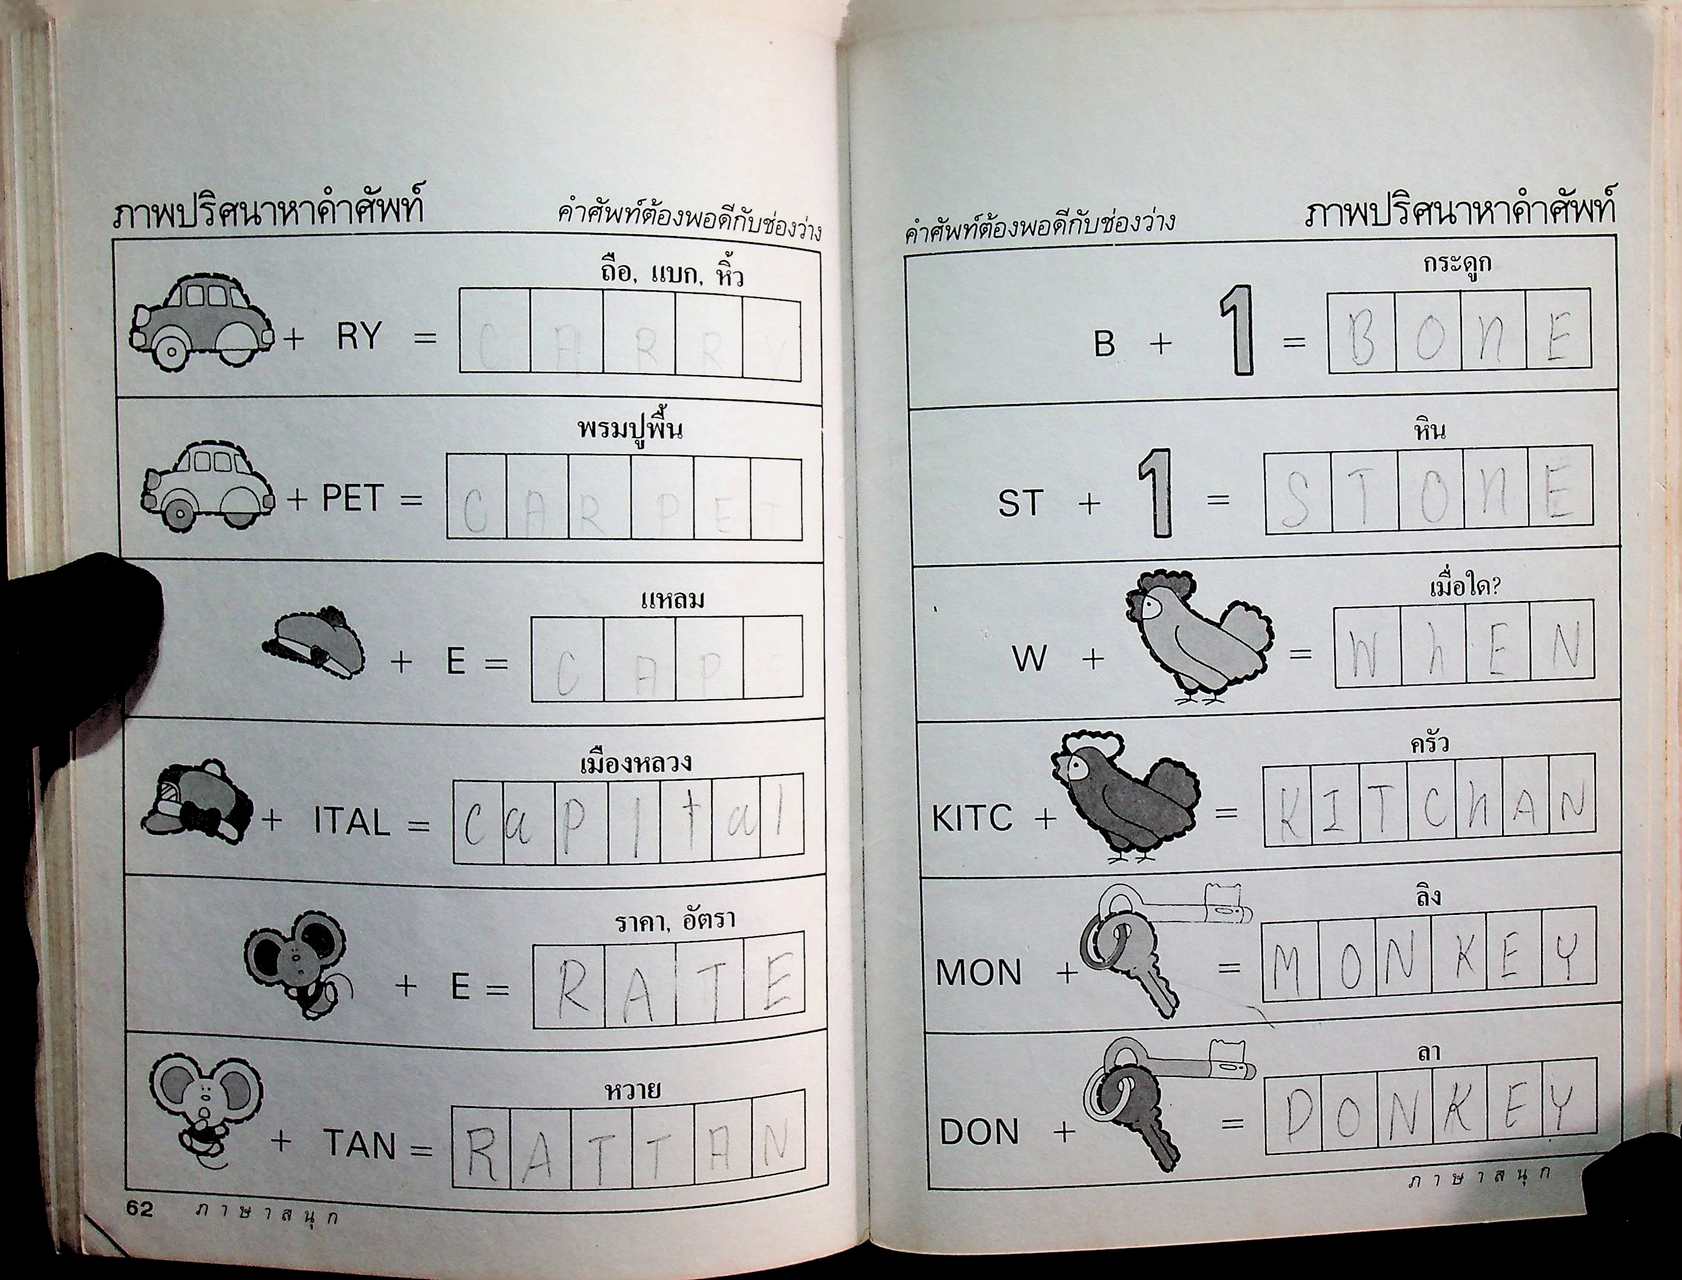 ภาพปริศนาหาคำศัพท์ คำศัพท์ต้องพอดีกับช่องว่าง
ถือ, แบก, หิ้ว
+ RY = CARRY
พรมปูพื้น
+ PET = CARPET
แหลม
+ E = CAP
เมืองหลวง
+ ITAL = capital
ราคา, อัตรา
+ E = RATE
หวาย
+ TAN = RATTAN
62 ภาษาสนุก
คำศัพท์ต้องพอดีกับช่องว่าง ภาพปริศนาหาคำศัพท์
กระดูก
B + 1 = BOnE
หิน
ST + 1 = STOnE
เมื่อใด?
W + = WhEN
ครัว
KITC + = KITChAN
ลิง
MON + = MONKEY
ลา
DON + = DONKEY
ภาษาสนุก